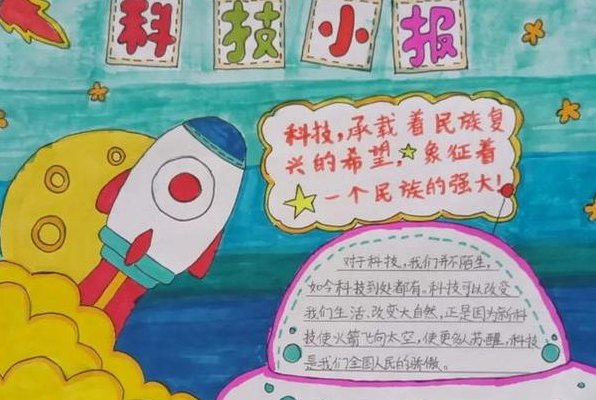 科技小报
科技,承载着民族复
兴的希望,象征着
一个民族的强大!
对于科技,我们并不陌生,
如今科技到处都有。科技可以改变
我们生活、改变大自然,正是因为新科
技使火箭飞向太空,使更多人苏醒,科技
是我们全国人民的骄傲。